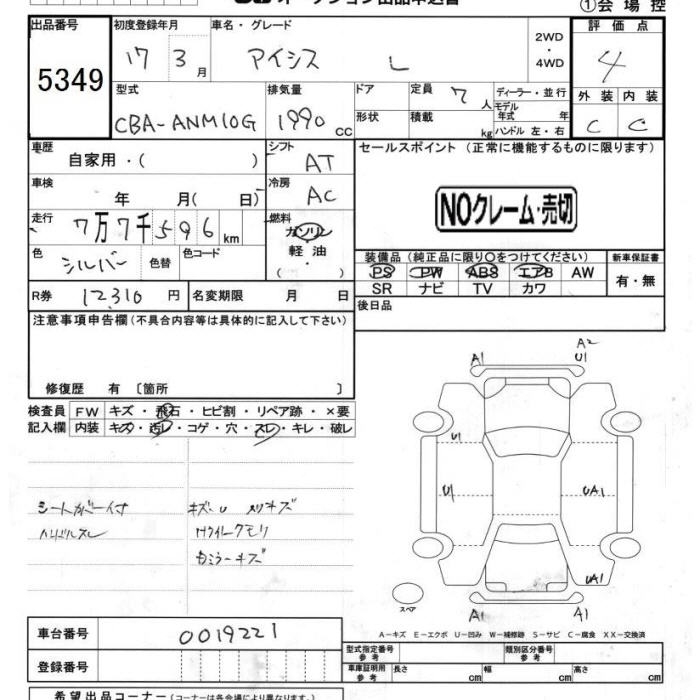 ①会場控
出品番号 初度登録年月 車名・グレード 2WD ・ 4WD 評価点
5349 17 3月 アイシス L 4
型式 排気量 ドア 定員 7人 ディーラー・並行 外装 内装
CBA-ANM10G 1990cc 形状 積載 kg モデル年式 年 C C
ハンドル 左・右
車歴 自家用・( ) シフト AT セールスポイント (正常に機能するものに限ります)
車検 年 月( 日) 冷房 AC NOクレーム・売切
走行 7万7千596km 燃料 ガソリン
色 シルバー 色替 色コード 軽油 ・( )
装備品(純正品に限り○をつけてください) 新車保証書
PS PW ABS エアB AW 有・無
SR ナビ TV カワ
R券 12,310円 名変期限 月 日 後日品
注意事項申告欄(不具合内容等は具体的に記入して下さい)
修復歴 有 〔箇所 〕
検査員 FW キズ・飛石・ヒビ割・リペア跡・×要
記入欄 内装 キズ・汚レ・コゲ・穴・スレ・キレ・破レ
シートカバー付 キズ・U
ハンドルスレ
A2
A1 U1
U1
U1 UA1
UA1
A1 A1
スペア
A−キズ E−エクボ U−凹み W−補修跡 S−サビ C−腐食 XX−交換済
車台番号 0019221
型式指定番号 参考 類別区分番号 参考
登録番号 車庫証明用 参考 長さ cm 幅 cm 高さ cm
希望出品コーナー(コーナーは各会場により異なります。)